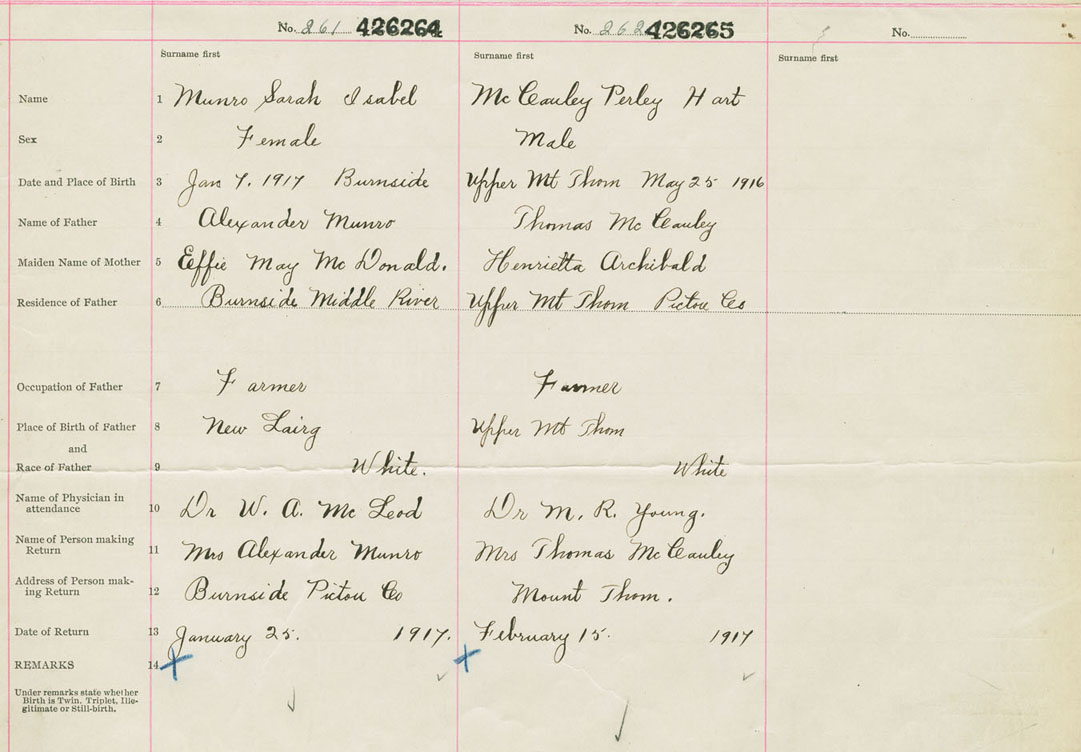 No. 261 426264 No. 262 426265 No.
Surname first Surname first Surname first
Name 1 Munro Sarah Isabel McCauley Perley Hart
Sex 2 Female Male
Date and Place of Birth 3 Jan 7. 1917 Burnside Upper Mt Thom May 25 1916
Name of Father 4 Alexander Munro Thomas McCauley
Maiden Name of Mother 5 Eeffie May McDonald. Henrietta Archibald
Residence of Father 6 Burnside Middle River Upper Mt Thom Pictou Co
Occupation of Father 7 Farmer Farmer
Place of Birth of Father 8 New Lairg Upper Mt Thom
and
Race of Father 9 White. White
Name of Physician in
attendance 10 Dr W. A. McLeod Dr M. R. Young.
Name of Person making
Return 11 Mrs Alexander Munro Mrs Thomas McCauley
Address of Person mak-
ing Return 12 Burnside Pictou Co Mount Thom.
Date of Return 13 January 25. 1917. February 15. 1917
REMARKS 14
Under remarks state whether
Birth is Twin, Triplet, Ille-
gitimate or Still-birth.